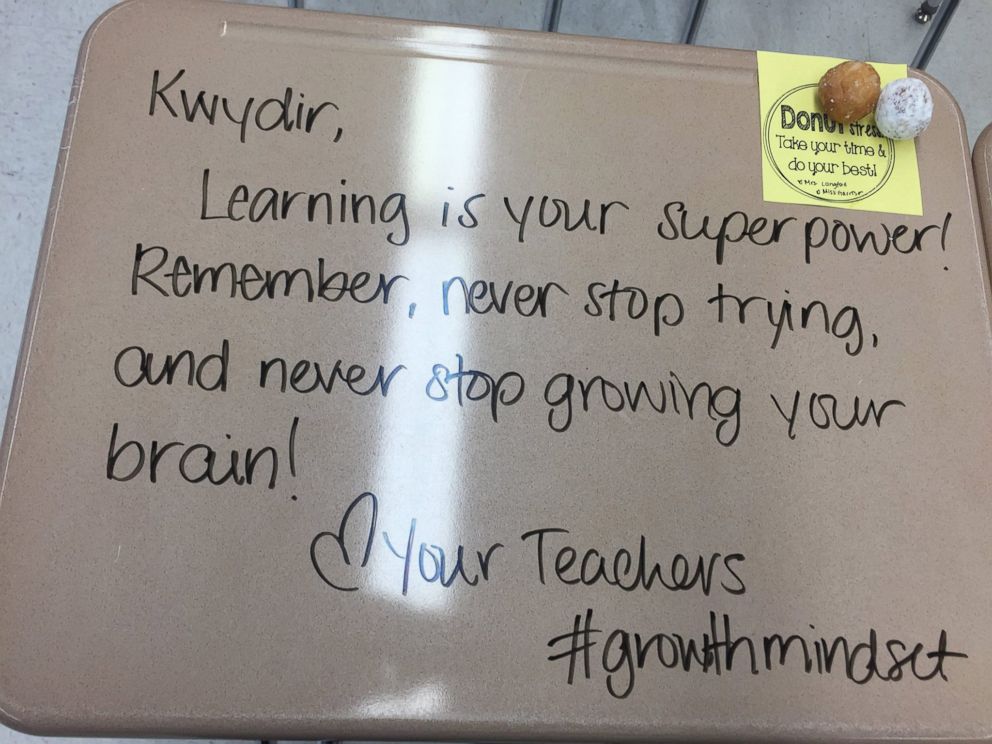 Kwydir,
Learning is your superpower!
Remember, never stop trying,
and never stop growing your
brain!
♡ Your Teachers
#growthmindset
Donut stress
Take your time &
do your best!
Mrs. Langford
Miss